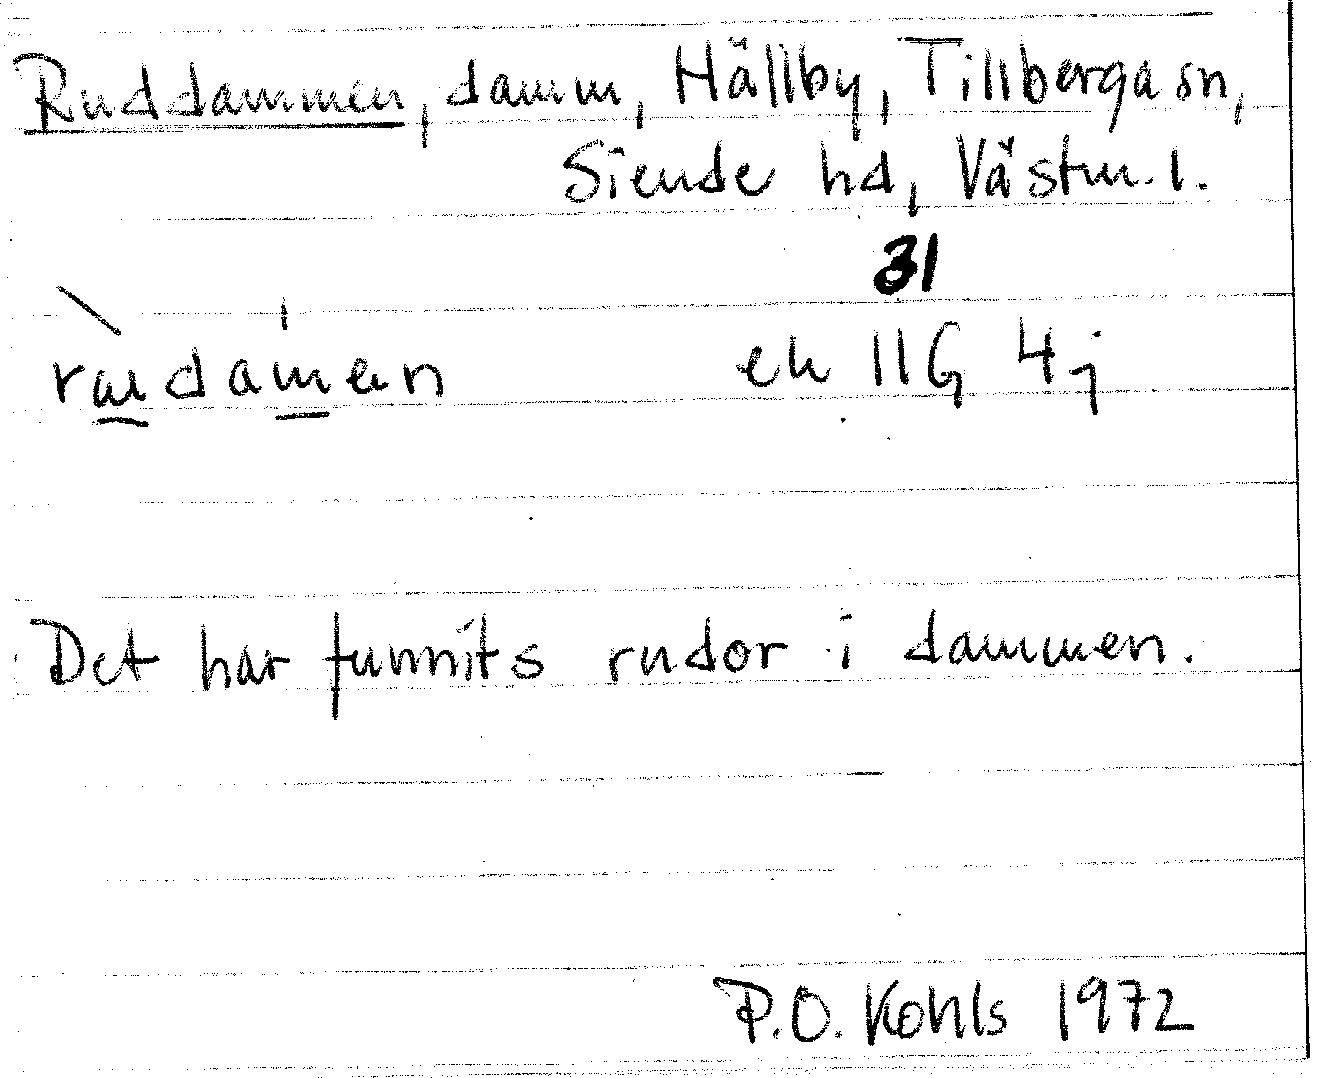 Ruddammen, damm, Hällby, Tillberga sn,
Siende hd, Västm. l.
31
rudamen ek 11G 4j
Det har funnits rudor i dammen.
P.O. Kohls 1972